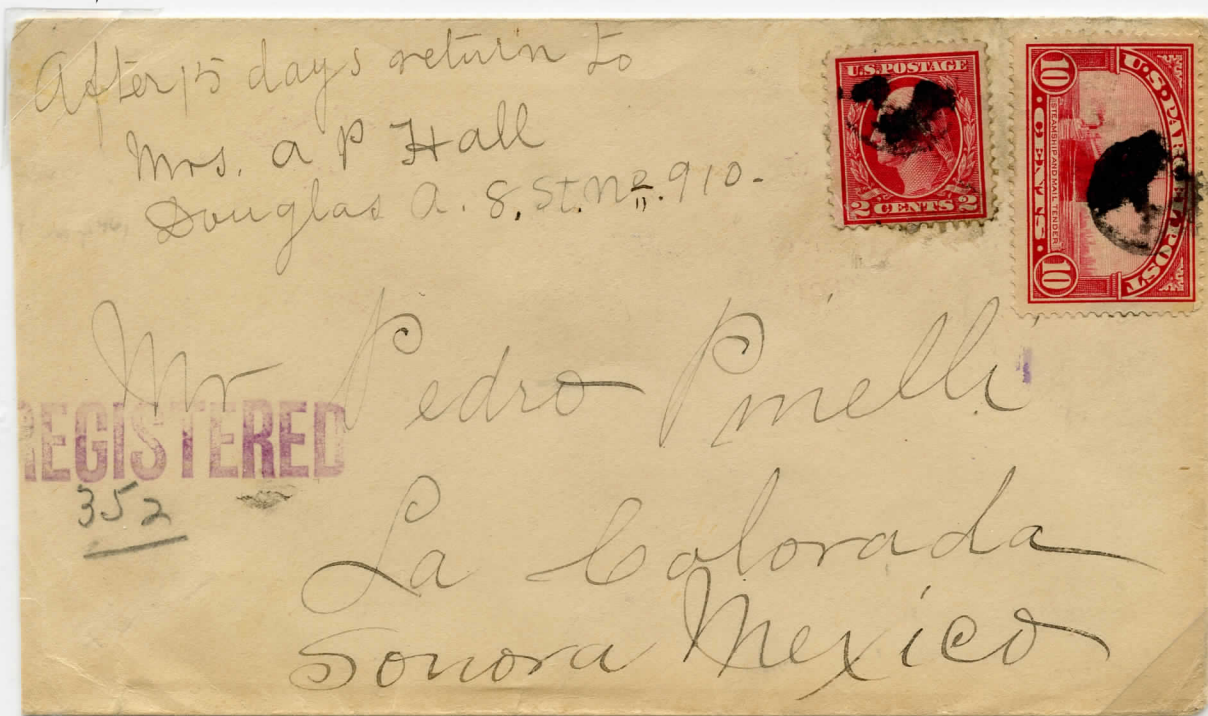 After 15 days return to
Mrs. A P Hall
Douglas A. 8. St. No. 910-
U.S. POSTAGE
2 CENTS 2
U.S. PARCEL POST
10 CENTS 10
STEAMSHIP AND MAIL TENDER
Mr Pedro Pinelli
REGISTERED
352
La Colorada
Sonora Mexico